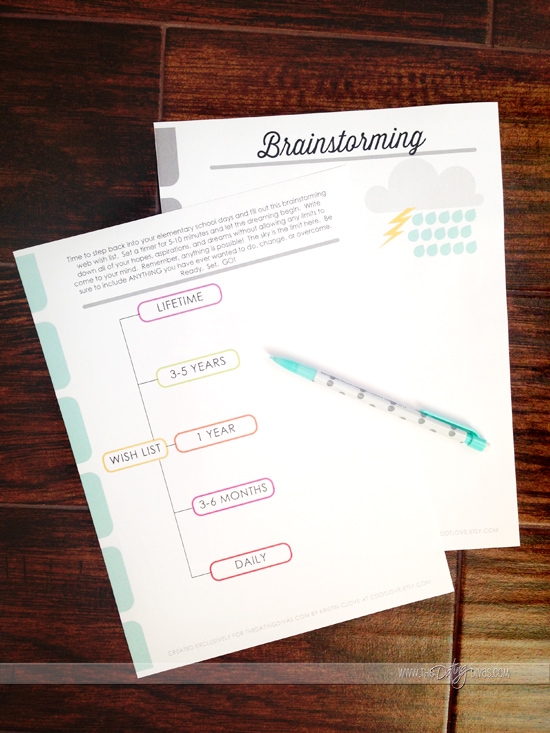 Brainstorming
Time to step back into your elementary school days and fill out this brainstorming
web wish list. Set a timer for 5-10 minutes and let the dreaming begin. Write
down all of your hopes, aspirations, and dreams without allowing any limits to
come to your mind. Remember, anything is possible! The sky is the limit here. Be
sure to include ANYTHING you have ever wanted to do, change, or overcome.
Ready. Set. GO!
LIFETIME
3-5 YEARS
1 YEAR
WISH LIST
3-6 MONTHS
DAILY
CREATED EXCLUSIVELY FOR THEDATINGDIVAS.COM BY KRISTIN CLOVE AT
WWW.THE Dating DIVAS.COM